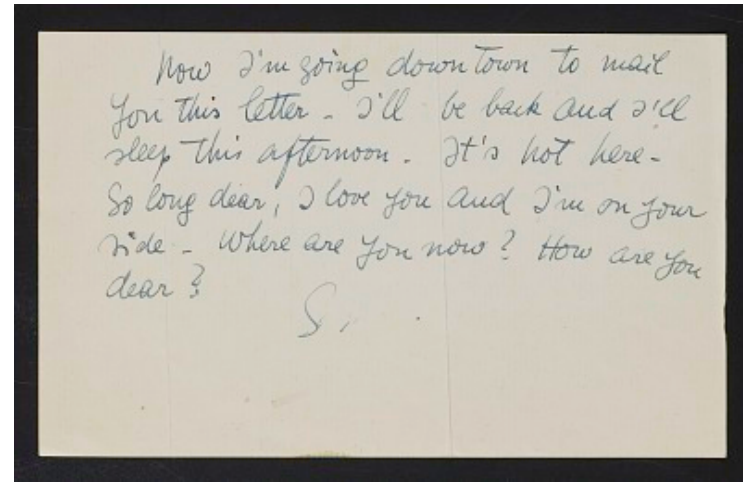 Now I'm going downtown to mail
you this letter - I'll be back and I'll
sleep this afternoon - It's hot here -
So long dear, I love you and I'm on your
side - Where are you now? How are you
dear?
S.